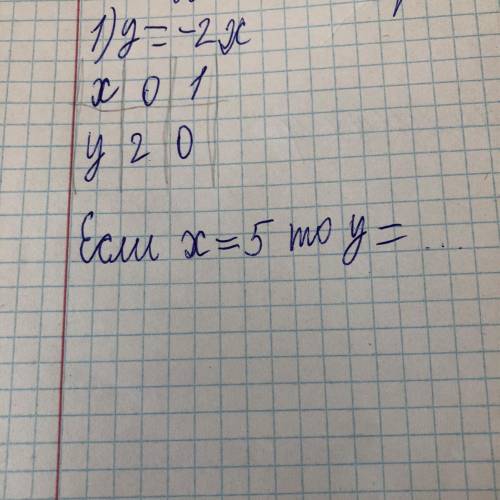 1) y = -2x
x 0 1
y 2 0
Если x = 5 то y = ...